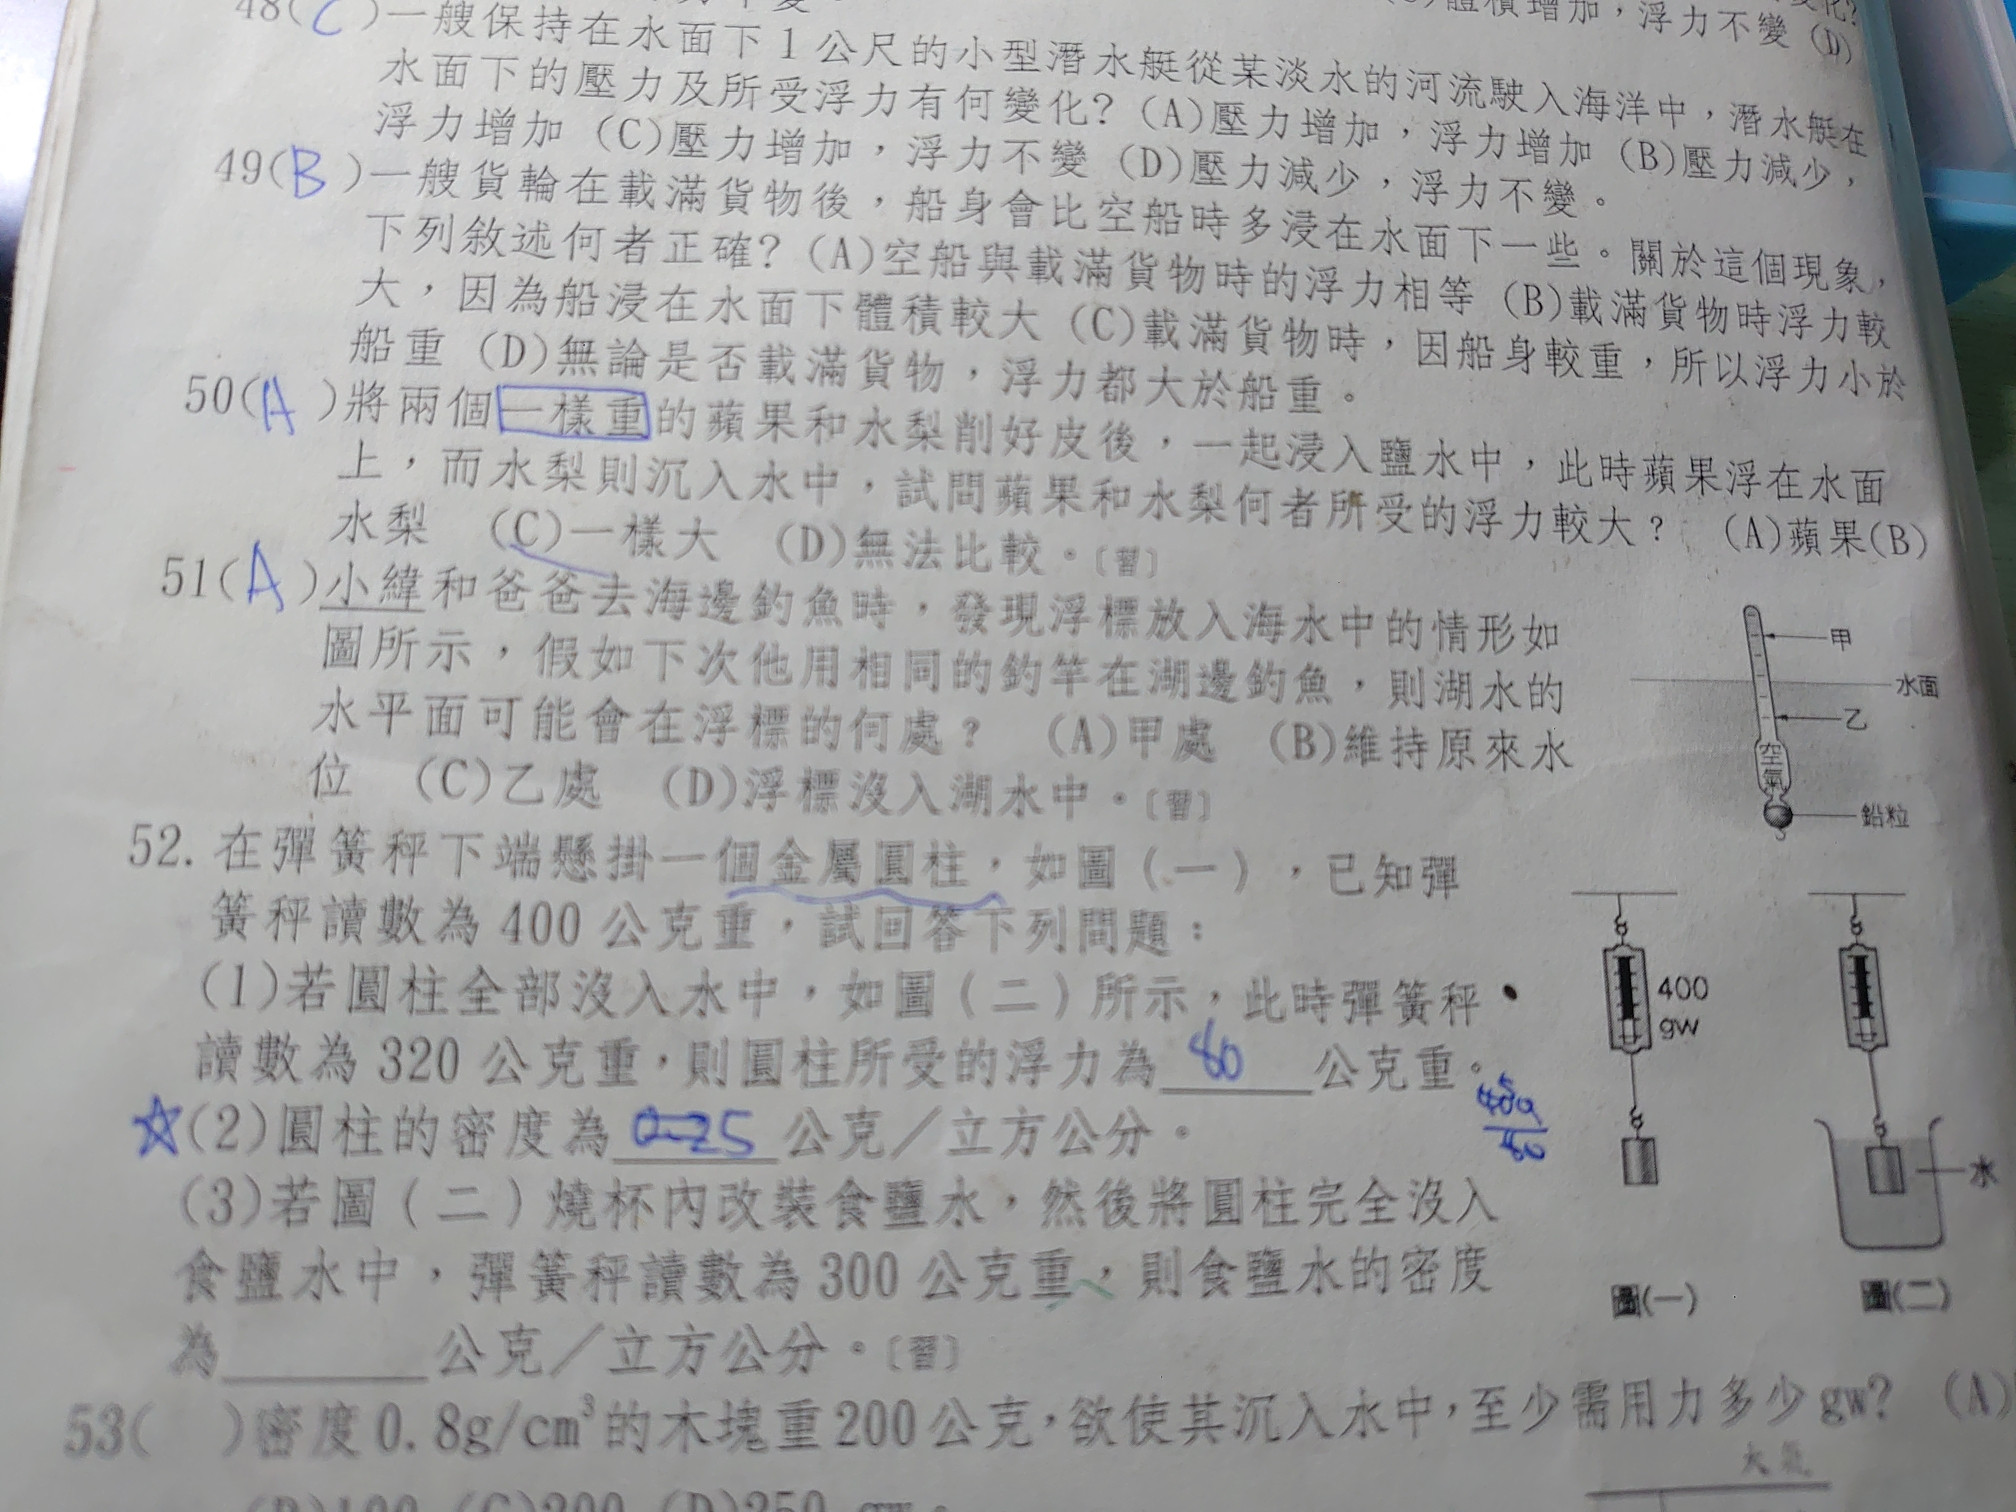 體積增加，浮力不變 (D)
48(C)一艘保持在水面下1公尺的小型潛水艇從某淡水的河流駛入海洋中，潛水艇在
水面下的壓力及所受浮力有何變化? (A)壓力增加，浮力增加 (B)壓力減少，
浮力增加 (C)壓力增加，浮力不變 (D)壓力減少，浮力不變。
49(B)一艘貨輪在載滿貨物後，船身會比空船時多浸在水面下一些。關於這個現象，
下列敘述何者正確? (A)空船與載滿貨物時的浮力相等 (B)載滿貨物時浮力較
大，因為船浸在水面下體積較大 (C)載滿貨物時，因船身較重，所以浮力小於
船重 (D)無論是否載滿貨物，浮力都大於船重。
50(A)將兩個一樣重的蘋果和水梨削好皮後，一起浸入鹽水中，此時蘋果浮在水面
上，而水梨則沉入水中，試問蘋果和水梨何者所受的浮力較大? (A)蘋果(B)
水梨 (C)一樣大 (D)無法比較。〔習〕
51(A)小緯和爸爸去海邊釣魚時，發現浮標放入海水中的情形如
圖所示，假如下次他用相同的釣竿在湖邊釣魚，則湖水的
水平面可能會在浮標的何處? (A)甲處 (B)維持原來水
位 (C)乙處 (D)浮標沒入湖水中。〔習〕
甲
水面
乙
空氣
鉛粒
52. 在彈簧秤下端懸掛一個金屬圓柱，如圖(一)，已知彈
簧秤讀數為400公克重，試回答下列問題：
(1)若圓柱全部沒入水中，如圖(二)所示，此時彈簧秤
讀數為320公克重，則圓柱所受的浮力為 80 公克重。
☆(2)圓柱的密度為 公克／立方公分。
(3)若圖(二)燒杯內改裝食鹽水，然後將圓柱完全沒入
食鹽水中，彈簧秤讀數為300公克重，則食鹽水的密度
為 公克／立方公分。〔習〕
400
gw
水
圖(一)
圖(二)
53( )密度0.8g/cm³的木塊重200公克，欲使其沉入水中，至少需用力多少gw? (A)
(B)100 (C)200 (D)250 gw。
大氣